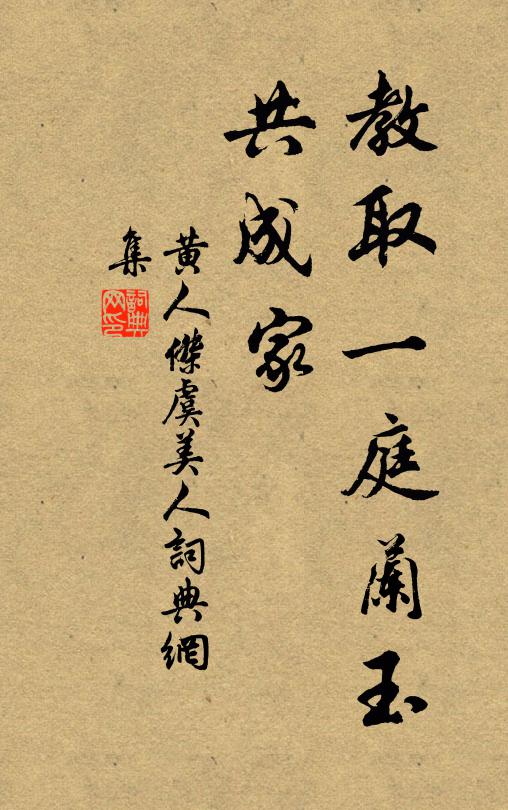 教取一庭蘭玉
共成家
黄人傑虞美人詞典網
集
詞典网印